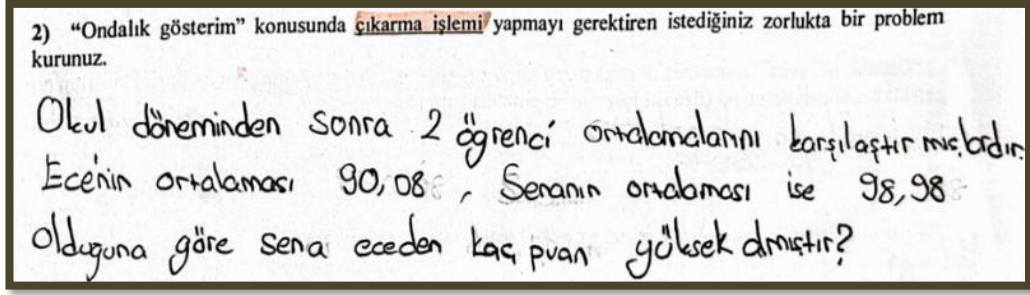 2) “Ondalık gösterim” konusunda çıkarma işlemi yapmayı gerektiren istediğiniz zorlukta bir problem
kurunuz.
Okul döneminden sonra 2 öğrenci ortalamalarını karşılaştırmışlardır.
Ece'nin ortalaması 90,08, Senanın ortalaması ise 98,98
olduğuna göre sena eceden kaç puan yüksek almıştır?